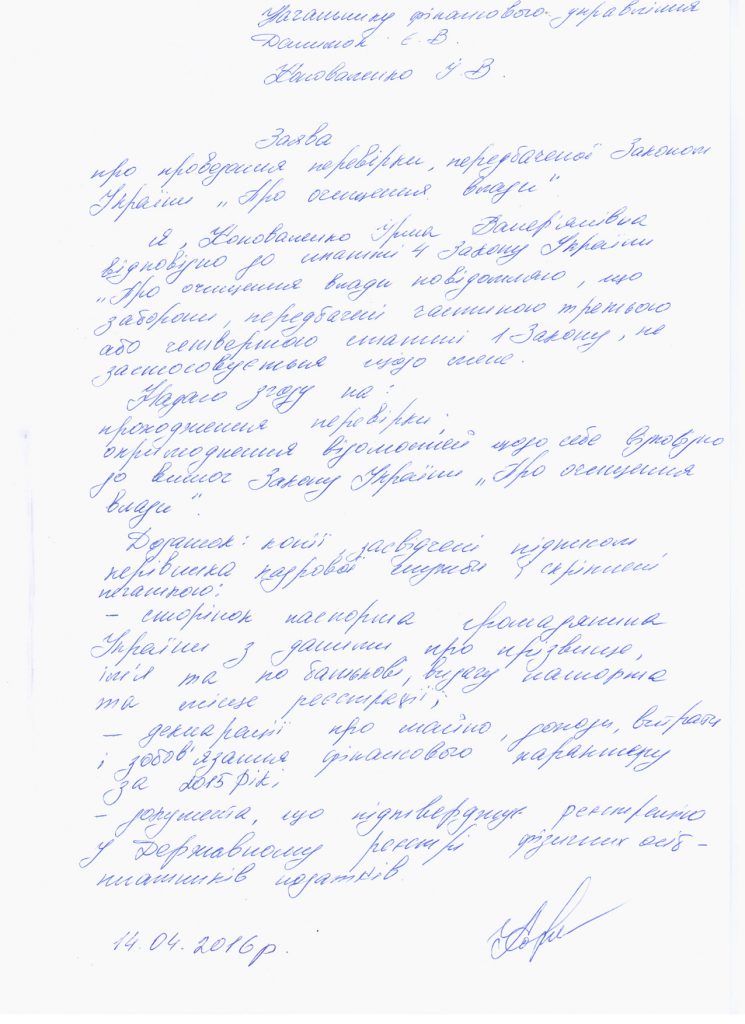 Начальнику фінансового управління
Долимок Є.В.
Коноваленко І.В.
Заява
про проведення перевірки, передбаченої Законом
України „Про очищення влади"
Я, Коноваленко Ірма Валер'янівна
відповідно до статті 4 Закону України
„Про очищення влади повідомляю, що
заборони, передбачені частиною третьою
або четвертою статті 1 Закону, не
застосовується щодо мене.
Надаю згоду на:
проходження перевірки;
оприлюднення відомостей щодо себе відповідно
до вимог Закону України „Про очищення
влади".
Додаток: копії, засвідчені підписом
керівника кадрової служби і скріплені
печаткою:
– сторінок паспорта громадянина
України з даними про прізвище,
ім'я та по батькові, видачу паспорта
та місце реєстрації;
– декларації про майно, доходи, витрати
і зобов'язання фінансового характеру
за 2015 рік;
– документа, що підтверджує реєстрацію
у Державному реєстрі фізичних осіб –
платників податків.
14.04.2016р.